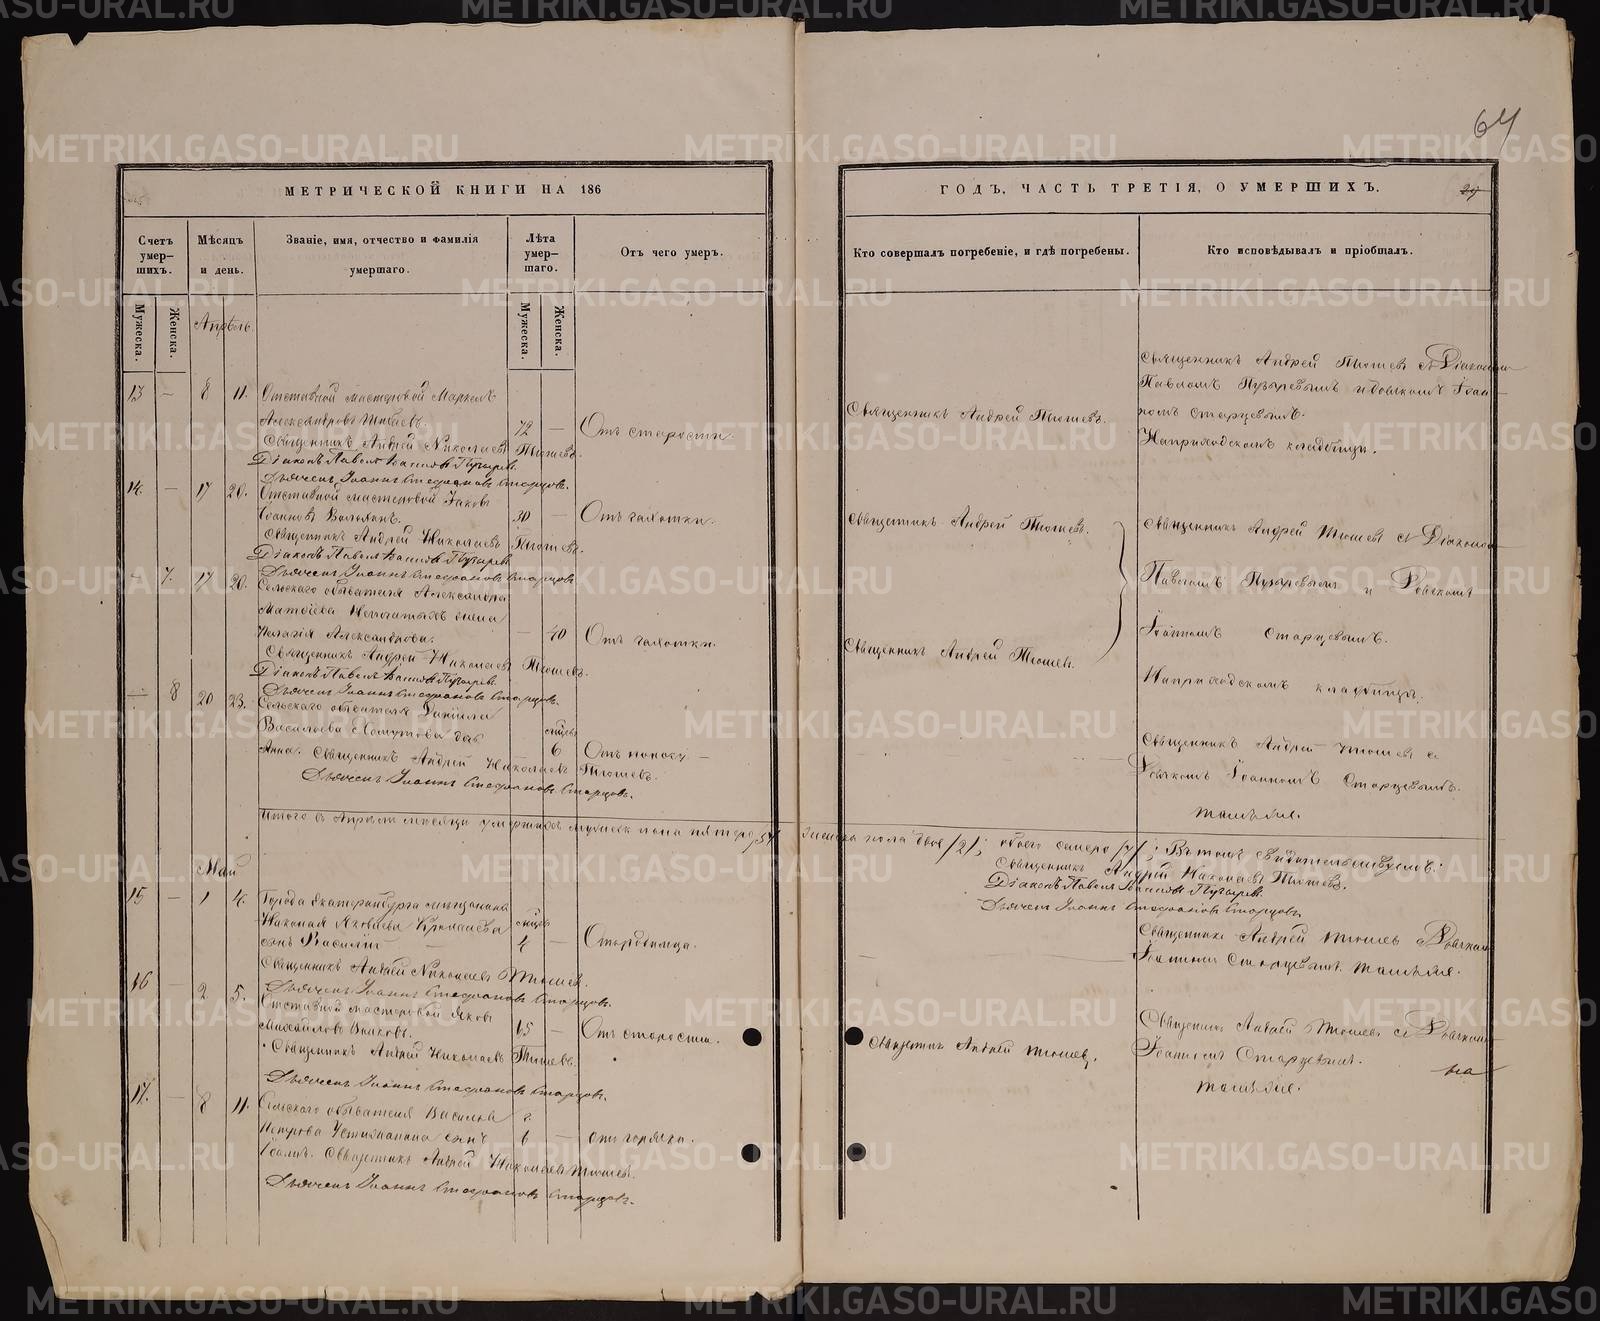 64
МЕТРИЧЕСКОЙ КНИГИ НА 186
ГОДЪ, ЧАСТЬ ТРЕТІЯ, О УМЕРШИХЪ.
29
Счетъ умер-шихъ.
Мѣсяцъ и день.
Званіе, имя, отчество и фамилія умершаго.
Лѣта умер-шаго.
Отъ чего умеръ.
Кто совершалъ погребеніе, и гдѣ погребены.
Кто исповѣдывалъ и пріобщалъ.
Мужеска.
Женска.
Мужеска.
Женска.
Апрѣль.
13 — 8 11. Отставной мастеровой
Александровъ
72 — Отъ старости.
Священникъ Андрей Николаевъ Тюшевъ.
Діаконъ Павелъ Іоанновъ Пузыревъ.
Дьячекъ Іоаннъ Стефановъ Старцовъ.
Священникъ Андрей Тюшевъ.
Священникъ Андрей Тюшевъ съ Діакономъ
Павломъ Пузыревымъ и дьячкомъ Іоан-
номъ Старцевымъ.
На приходскомъ кладбищѣ.
14. — 17 20. Отставной мастеровой Іаковъ
Іоанновъ
30 — Отъ чахотки.
Священникъ Андрей Николаевъ Тюшевъ.
Діаконъ Павелъ Іоанновъ Пузыревъ.
Дьячекъ Іоаннъ Стефановъ Старцовъ.
Священникъ Андрей Тюшевъ.
Священникъ Андрей Тюшевъ съ Діакономъ
Павломъ Пузыревымъ и Дьячкомъ
Іоанномъ Старцевымъ.
На приходскомъ кладбищѣ.
— 7. 17 20. Сельскаго обывателя Александра
Матѳіева жена
Александрова.
— 40 Отъ чахотки.
Священникъ Андрей Николаевъ Тюшевъ.
Діаконъ Павелъ Іоанновъ Пузыревъ.
Дьячекъ Іоаннъ Стефановъ Старцовъ.
Священникъ Андрей Тюшевъ.
— 8 20 23. Сельскаго обывателя Даніила
Васильева Хомутова дочь
Анна.
6 Отъ поносу —
Священникъ Андрей Николаевъ Тюшевъ.
Дьячекъ Іоаннъ Стефановъ Старцовъ.
Священникъ Андрей Тюшевъ съ
Дьячкомъ Іоанномъ Старцевымъ.
тамъ же.
Итого въ Апрѣлѣ мѣсяцѣ умершихъ мужеск пола пятеро /5/ женска пола двое /2/; обоего семеро /7/; Въ томъ свидѣтельствуемъ:
Священникъ Андрей Николаевъ Тюшевъ.
Діаконъ Павелъ Іоанновъ Пузыревъ
Дьячекъ Іоаннъ Стефановъ Старцовъ
Май
15 — 1 4. Города Екатеринбурга мѣщанина
Николая Яковлева
сынъ Василій
4 —
Священникъ Андрей Николаевъ Тюшевъ.
Дьячекъ Іоаннъ Стефановъ Старцовъ.
Священникъ Андрей Тюшевъ съ Дьячкомъ
Іоанномъ Старцевымъ. тамъ же.
16 — 2 5. Отставной мастеровой Яковъ
Михайловъ Волковъ.
65 — Отъ старости.
Священникъ Андрей Николаевъ Тюшевъ.
Дьячекъ Іоаннъ Стефановъ Старцовъ.
Священникъ Андрей Тюшевъ.
Священникъ Андрей Тюшевъ съ Дьячкомъ
Іоанномъ Старцевымъ.
тамъ же.
17. — 8 11. Сельскаго обывателя Василья
Петрова сынъ
Іоаннъ.
6 — отъ горячки.
Священникъ Андрей Николаевъ Тюшевъ.
Дьячекъ Іоаннъ Стефановъ Старцовъ.
METRIKI.GASO-URAL.RU